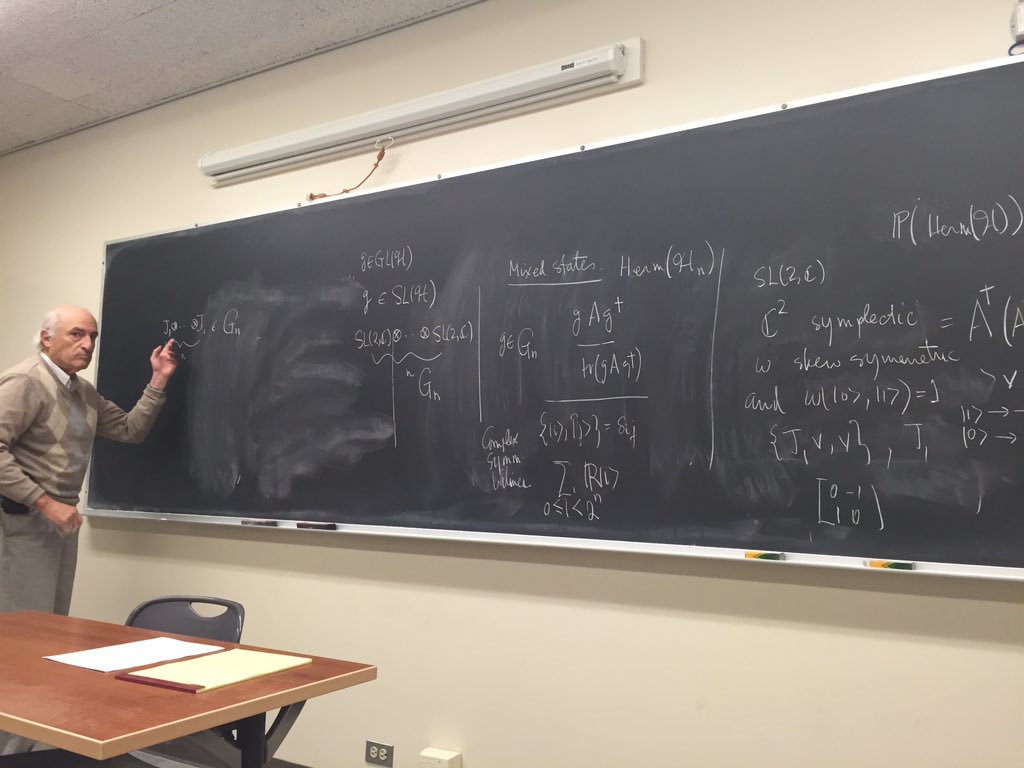 J₁⊗···⊗J₁ ∈ Gₙ
n
g∈GL(ℋ)
g ∈ SL(ℋ)
SL(2,ℂ)⊗···⊗SL(2,ℂ)
n
Gₙ
Mixed states. Herm(ℋₙ)
g∈Gₙ
gAg†
tr(gAg†)
{|i>, |j>} = δᵢ,ⱼ
Complex
symm
∑ ℝ|i>
0≤i<2ⁿ
ℙ(Herm(ℋ))
SL(2,ℂ)
ℂ² symplectic = A†(A
ω skew symmetric
and ω(|0>, |1>)=1
{J₁v, v}, J₁
>v
|1> → -
|0> →
[0 -1
1 0]